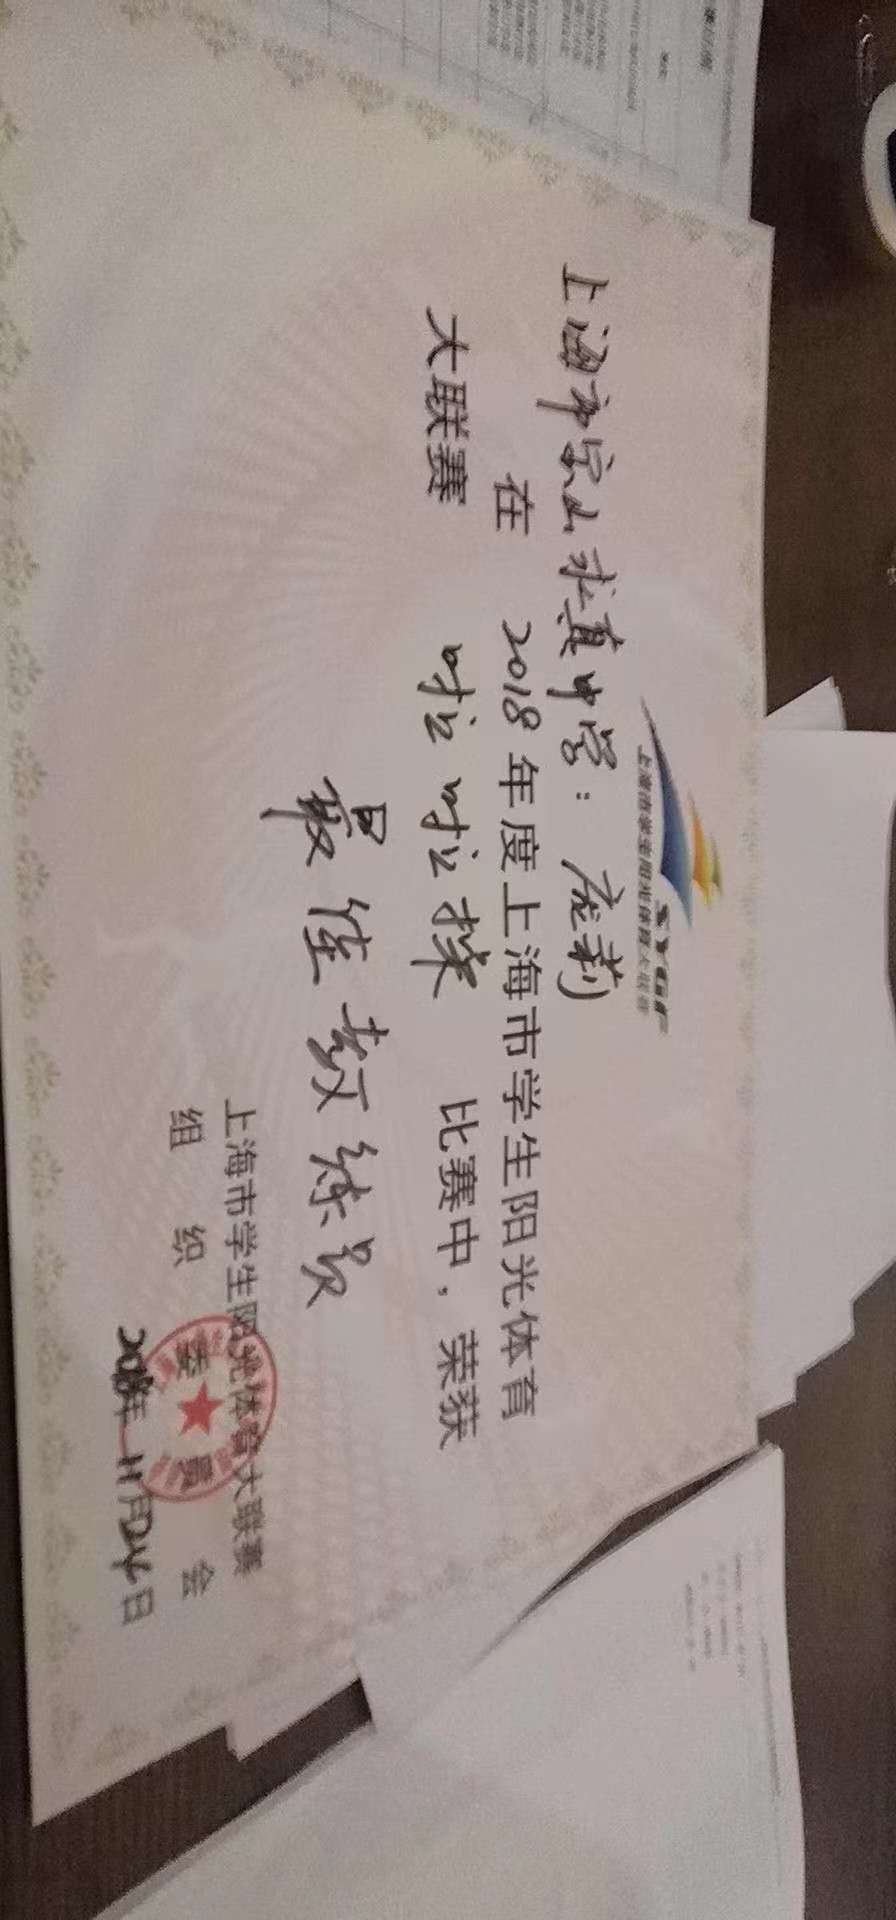 SYGF
上海市学生阳光体育大联赛
上海市宝山求真中学：庞莉
在 2018年度上海市学生阳光体育
大联赛 啦啦操 比赛中，荣获
最佳教练员
上海市学生阳光体育大联赛
组织委员会
2018年11月24日